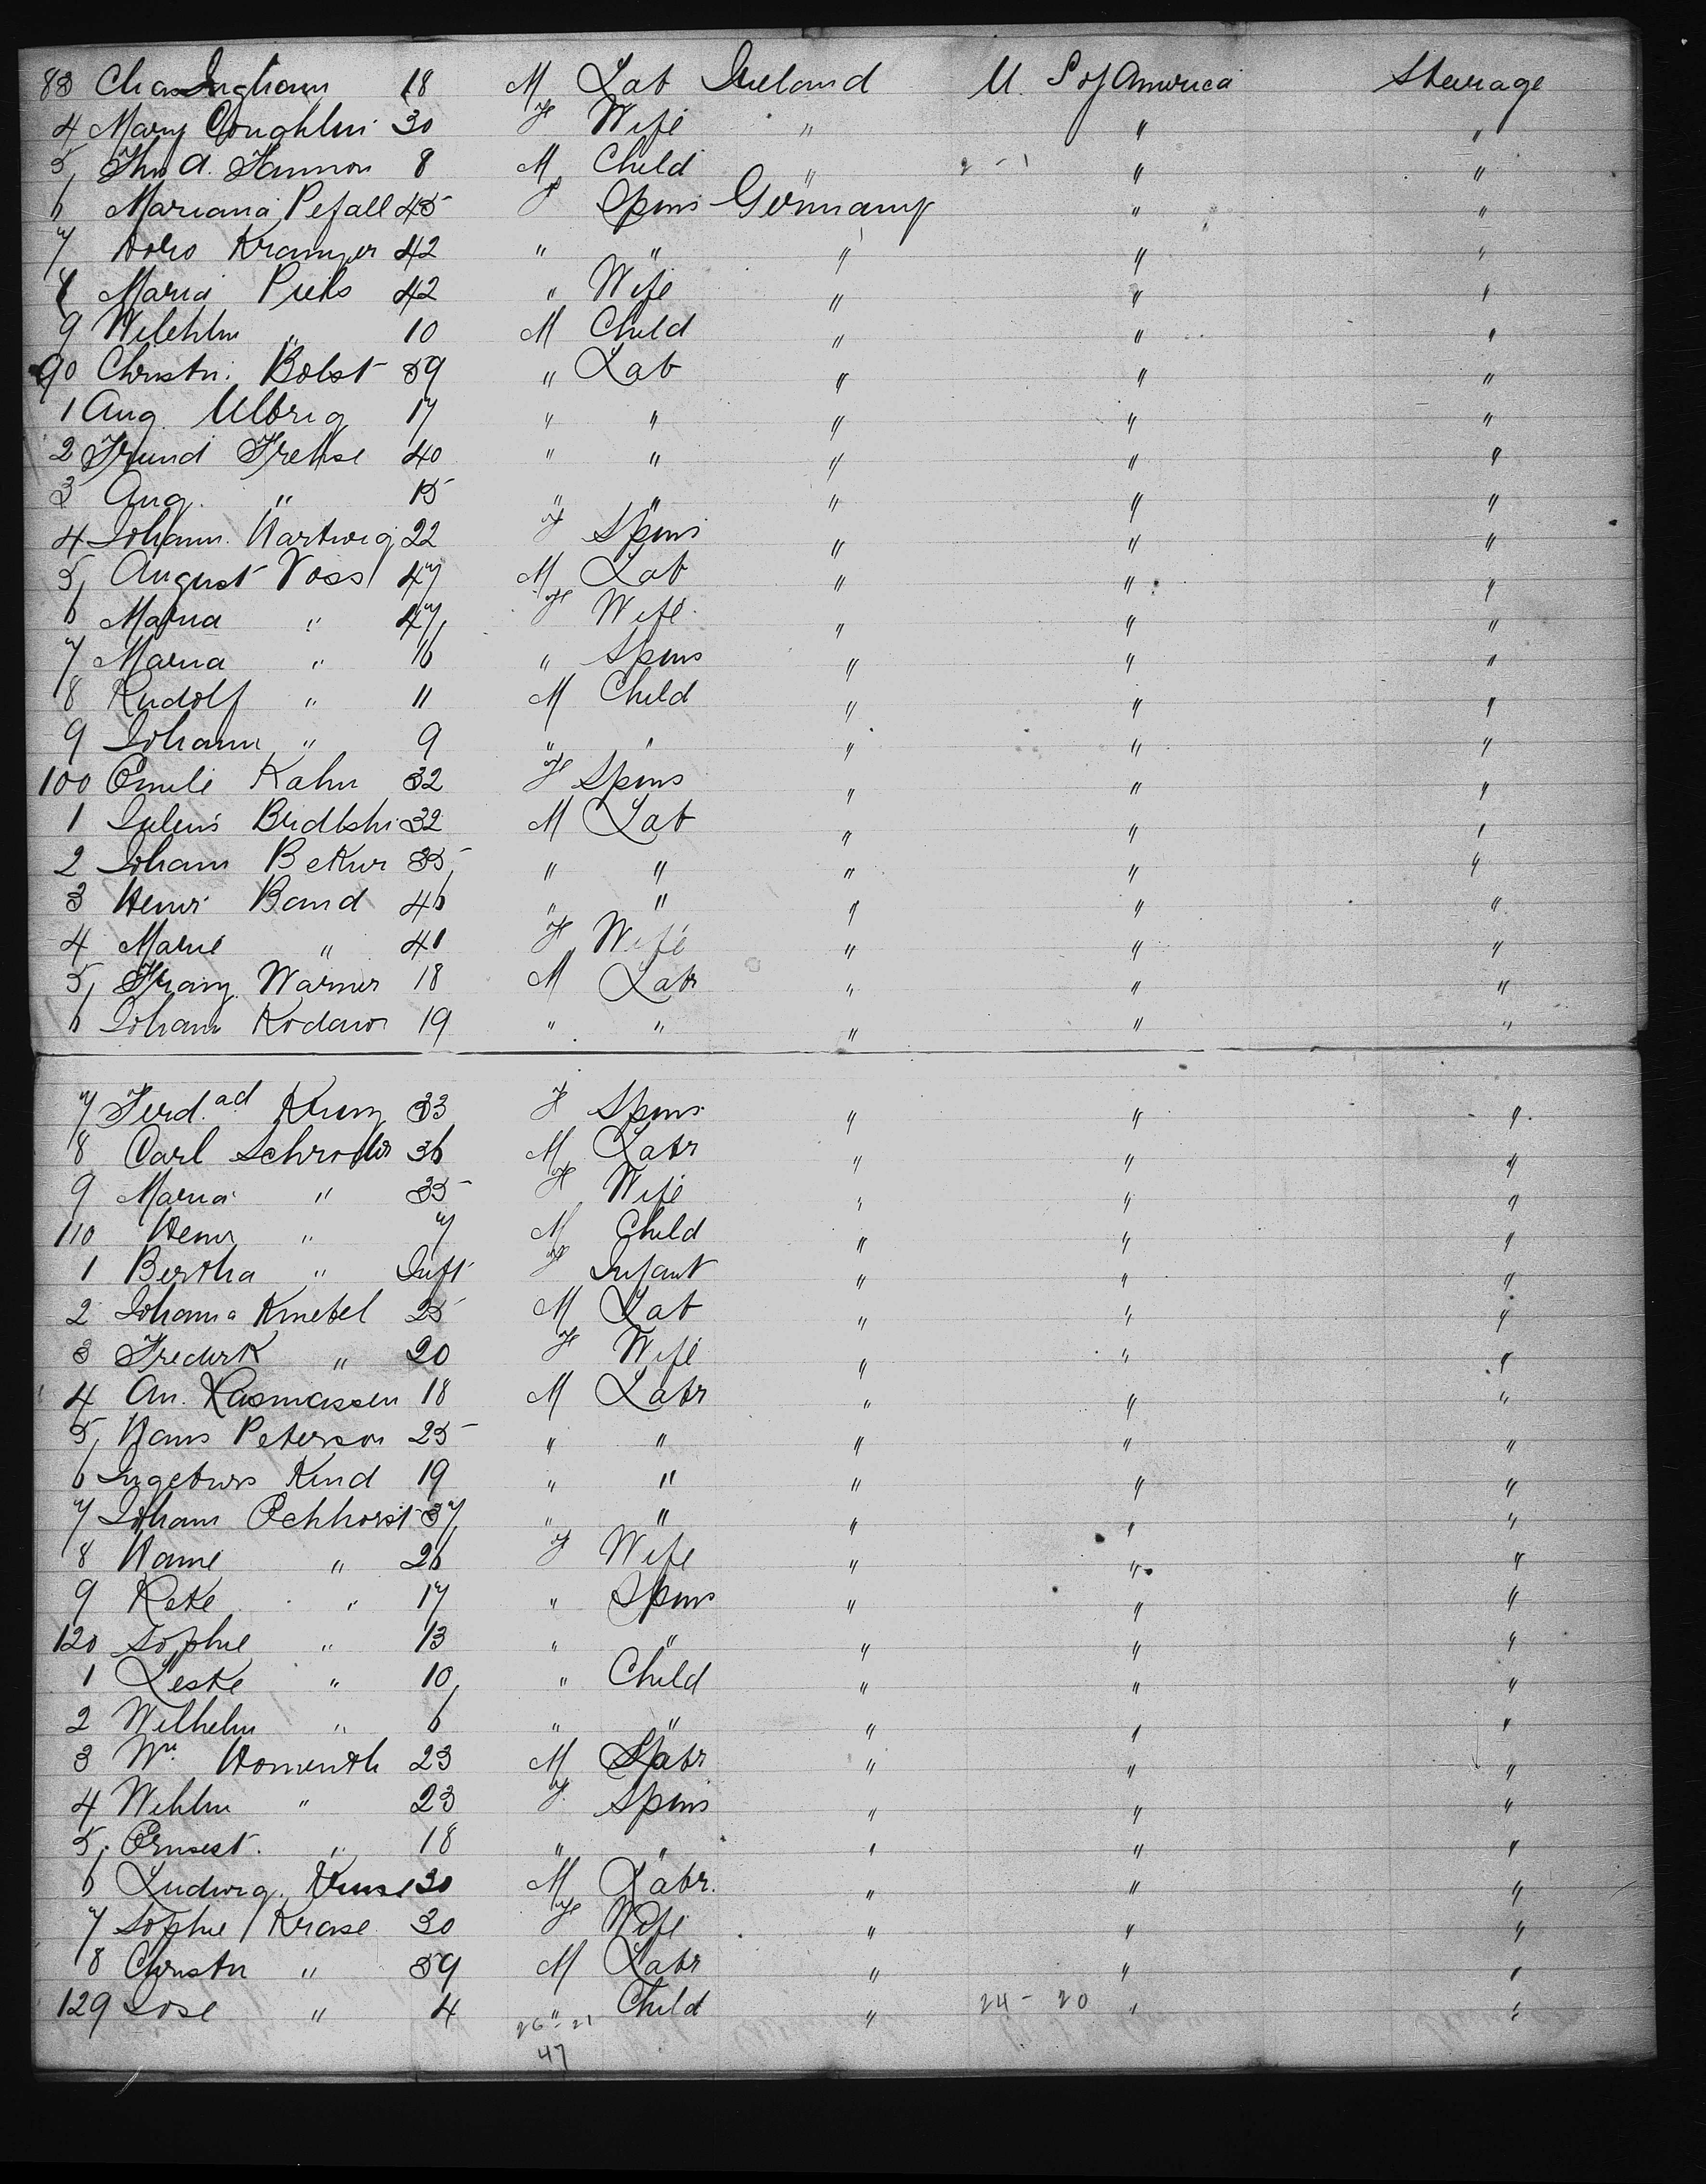 83 Chas Ingham 18 M Lab Ireland U. S of America Steerage
4 Mary Coughlin 30 F Wife " " "
5, Thos A. Fannon 8 M Child " 2 - 1 " "
6 Mariana Pefall 45 F Spins Germany " "
7 Doro Kramper 42 " " " " "
8 Maria Pieks 42 " Wife " " "
9 Wilehlm " 10 M Child " " "
90 Christn. Bolst 59 " Lab " " "
1 Aug. Ulbrig 17 " " " " "
2 Friend Frehse 40 " " " " "
3 Aug. " 15 " " " " "
4 Johann. Hartwig 22 F Spins " " "
5, August Voss 47 M Lab " " "
6 Maria " 47, F Wife " " "
7 Maria " 16 " Spins " " "
8 Rudolf " 11 M Child " " "
9 Johann " 9 " " " " "
100 Emile Kahn 32 F Spins " " "
1 Julius Bridlshi 32 M Lab " " "
2 Johann Bekur 35, " " " " "
3 Henri Band 46 " " " " "
4 Marie " 41 F Wife " " "
5, Franz. Warner 18 M Labr " " "
6 Johann Kodawi 19 " " " " "
7 Ferd.ad Krum 33 F Spins " " "
8 Carl Schroder 36 M Labr " " "
9 Maria " 35 F Wife " " "
110 Henr " 7 M Child " " "
1 Bertha " Inft F Infant " " "
2 Johanna Knebel 25 M Lab " " "
3 Frederk " 20 F Wife " " "
4 An. Rasmassen 18 M Labr " " "
5, Hans Peterson 25 " " " " "
6 Ingeburs Kind 19 " " " " "
7 Johann Echhorst 37, " " " " "
8 Hame " 26 F Wife " " "
9 Reke " 17 " Spins " " "
120 Sophie " 13 " " " " "
1 Leske " 10, " Child " " "
2 Wilhelm " 6 " " " " "
3 Wm. Homenth 23 M Labr " " "
4 Wihlm " 23 F. Spins " " "
5, Ernsest. " 18 " " " " "
6 Ludwig. Kruse 30 M Labr. " " "
7 Sophie Krase 30 F Wife " " "
8 Christn " 59 M Labr " " "
129 Jose " 4 " Child " 24 - 20 " "
26 - 21
47